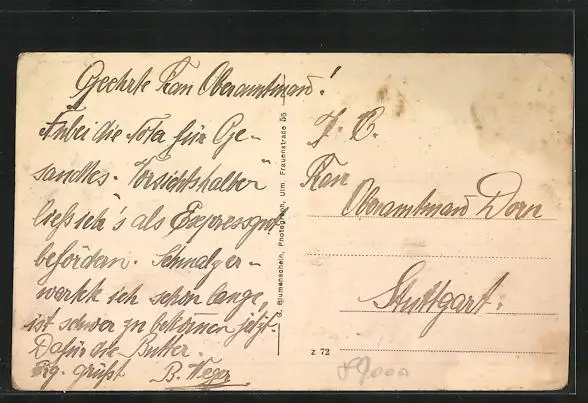 Geehrte Frau Oberamtmann!
Anbei die Nota für Ge-
sandtes. Vorsichtshalber
ließ ich's als Expressgut
befördern. Schmalz er-
wartete ich schon lange,
ist schwer zu bekommen jetzt.
Dafür die Butter.
grüßt B. Weger
G. Blumenschein, Photograph, Ulm, Frauenstraße 55
Frau
Oberamtmann Dorn
Stuttgart.
z 72